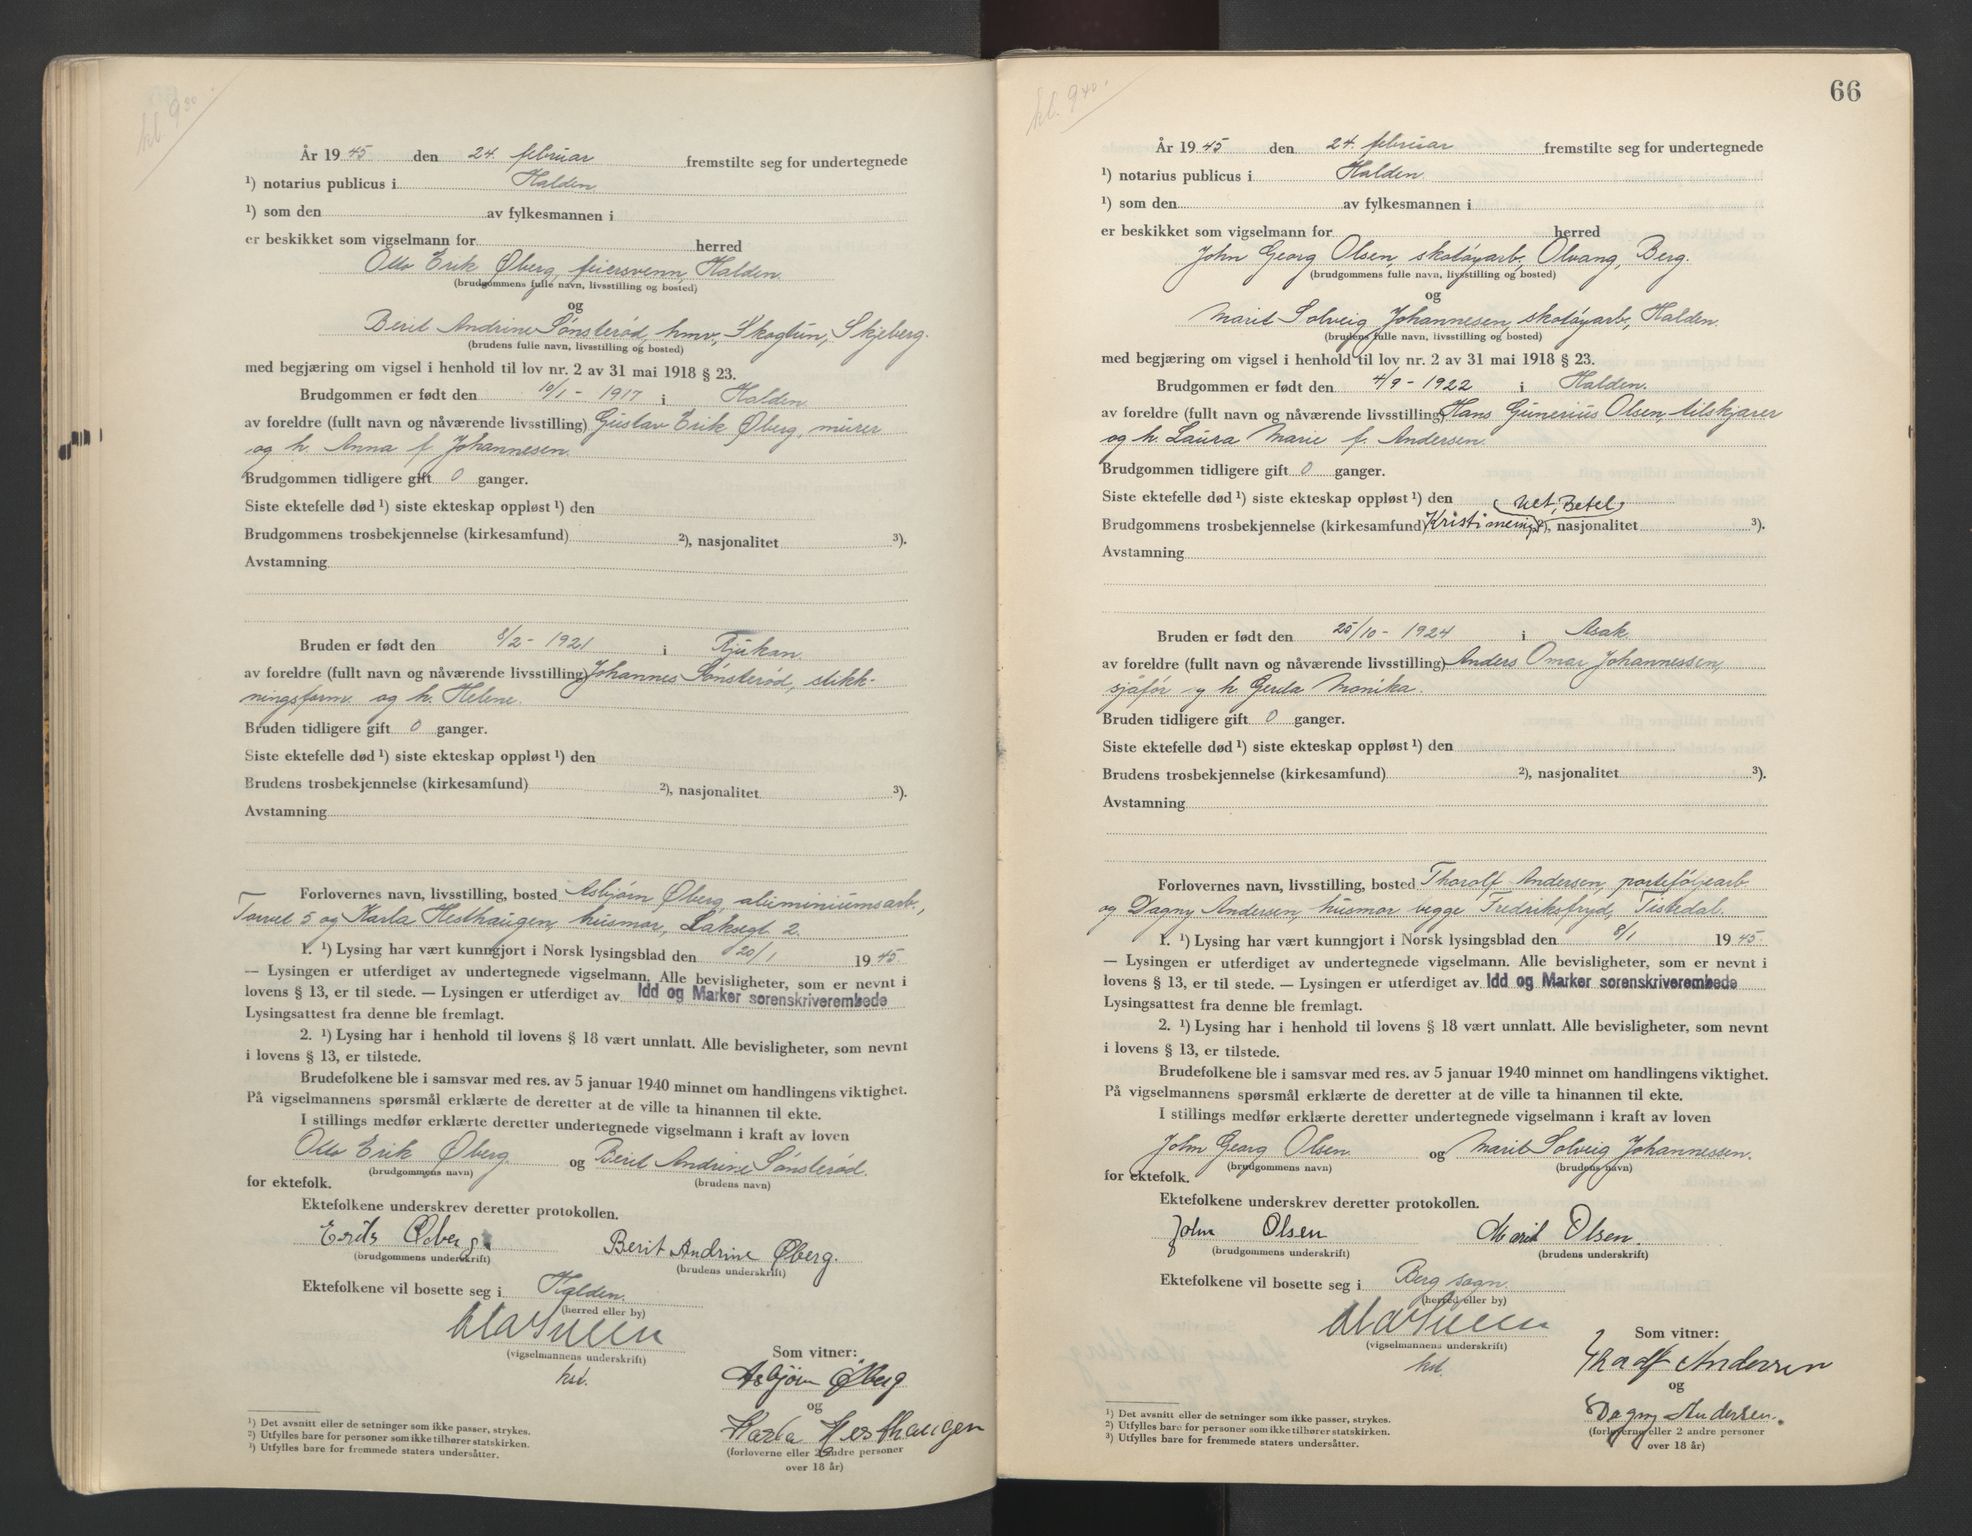 kl. 9³⁰.
År 1945 den 24. februar fremstilte seg for undertegnede
¹) notarius publicus i Halden
¹) som den av fylkesmannen i
er beskikket som vigselmann for herred
Otto Erik Øberg, feiersvenn, Halden.
(brudgommens fulle navn, livsstilling og bosted)
og
Berit Andrine Sønsterød, hmv., Skogtun, Skjeberg.
(brudens fulle navn, livsstilling og bosted)
med begjæring om vigsel i henhold til lov nr. 2 av 31 mai 1918 § 23.
Brudgommen er født den 10/1 - 1917 i Halden
av foreldre (fullt navn og nåværende livsstilling) Gustav Erik Øberg, murer
og h. Anna f. Johannesen.
Brudgommen tidligere gift 0 ganger.
Siste ektefelle død ¹) siste ekteskap oppløst ¹) den
Brudgommens trosbekjennelse (kirkesamfund) ²), nasjonalitet ³).
Avstamning
Bruden er født den 8/2 - 1921 i Rjukan.
av foreldre (fullt navn og nåværende livsstilling) Johannes Sønsterød, stikk-
ningsform og h. Helene.
Bruden tidligere gift 0 ganger.
Siste ektefelle død ¹) siste ekteskap oppløst ¹) den
Brudens trosbekjennelse (kirkesamfund) ²), nasjonalitet ³).
Avstamning
Forlovernes navn, livsstilling, bosted Asbjørn Øberg, aluminiumsarb.,
Torvet 5 og Karla Hesthaugen, husmor, Laksegt 2.
1. ¹) Lysing har vært kunngjort i Norsk lysingsblad den 20/1 1945.
— Lysingen er utferdiget av undertegnede vigselmann. Alle bevisligheter, som er nevnt i
lovens § 13, er til stede. — Lysingen er utferdiget av Idd og Marker sorenskriverembede
Lysingsattest fra denne ble fremlagt.
2. ¹) Lysing har i henhold til lovens § 18 vært unnlatt. Alle bevisligheter, som nevnt
i lovens § 13, er tilstede.
Brudefolkene ble i samsvar med res. av 5 januar 1940 minnet om handlingens viktighet.
På vigselmannens spørsmål erklærte de deretter at de ville ta hinannen til ekte.
I stillings medfør erklærte deretter undertegnede vigselmann i kraft av loven
Otto Erik Øberg og Berit Andrine Sønsterød.
(brudgommens navn) (brudens navn)
for ektefolk.
Ektefolkene underskrev deretter protokollen.
Erik Øberg. Berit Andrine Øberg.
(brudgommens underskrift) (brudens underskrift)
Ektefolkene vil bosette seg i Halden.
(herred eller by)
(vigselmannens underskrift)
kst.
Som vitner:
Asbjørn Øberg
og
Karla Hesthaugen
(forloverne eller 2 andre personer
over 18 år)
¹) Det avsnitt eller de setninger som ikke passer, strykes.
²) Utfylles bare for personer som ikke tilhører statskirken.
³) Utfylles bare for fremmede staters undersåtter.
66
kl. 9⁴⁰.
År 1945 den 24. februar fremstilte seg for undertegnede
¹) notarius publicus i Halden.
¹) som den av fylkesmannen i
er beskikket som vigselmann for herred
John Georg Olsen, skotøyarb., Olvang, Berg.
(brudgommens fulle navn, livsstilling og bosted)
og
Marit Solveig Johannesen, skotøyarb., Halden.
(brudens fulle navn, livsstilling og bosted)
med begjæring om vigsel i henhold til lov nr. 2 av 31 mai 1918 § 23.
Brudgommen er født den 4/9 - 1922 i Halden.
av foreldre (fullt navn og nåværende livsstilling) Hans Gunerius Olsen, tilskjærer
og h. Laura Marie f. Andersen.
Brudgommen tidligere gift 0 ganger.
Siste ektefelle død ¹) siste ekteskap oppløst ¹) den
Brudgommens trosbekjennelse (kirkesamfund) Kristi menigh. Betel ²), nasjonalitet ³).
Avstamning
Bruden er født den 25/10 - 1924 i Asak.
av foreldre (fullt navn og nåværende livsstilling) Anders Omar Johannessen,
sjåfør og h. Gerda Monika.
Bruden tidligere gift 0 ganger.
Siste ektefelle død ¹) siste ekteskap oppløst ¹) den
Brudens trosbekjennelse (kirkesamfund) ²), nasjonalitet ³).
Avstamning
Forlovernes navn, livsstilling, bosted Thorolf Andersen, porteføljearb
og Dagny Andersen, husmor begge Fredriksfryd, Tistedal.
1. ¹) Lysing har vært kunngjort i Norsk lysingsblad den 8/1 1945.
— Lysingen er utferdiget av undertegnede vigselmann. Alle bevisligheter, som er nevnt i
lovens § 13, er til stede. — Lysingen er utferdiget av Idd og Marker sorenskriverembede
Lysingsattest fra denne ble fremlagt.
2. ¹) Lysing har i henhold til lovens § 18 vært unnlatt. Alle bevisligheter, som nevnt
i lovens § 13, er tilstede.
Brudefolkene ble i samsvar med res. av 5 januar 1940 minnet om handlingens viktighet.
På vigselmannens spørsmål erklærte de deretter at de ville ta hinannen til ekte.
I stillings medfør erklærte deretter undertegnede vigselmann i kraft av loven
John Georg Olsen. og Marit Solveig Johannessen.
(brudgommens navn) (brudens navn)
for ektefolk.
Ektefolkene underskrev deretter protokollen.
John Olsen Marit Olsen.
(brudgommens underskrift) (brudens underskrift)
Ektefolkene vil bosette seg i Berg sogn.
(herred eller by)
(vigselmannens underskrift)
kst.
Som vitner:
Thorolf Andersen
og
Dagny Andersen.
(forloverne eller 2 andre personer
over 18 år)
¹) Det avsnitt eller de setninger som ikke passer, strykes.
²) Utfylles bare for personer som ikke tilhører statskirken.
³) Utfylles bare for fremmede staters undersåtter.